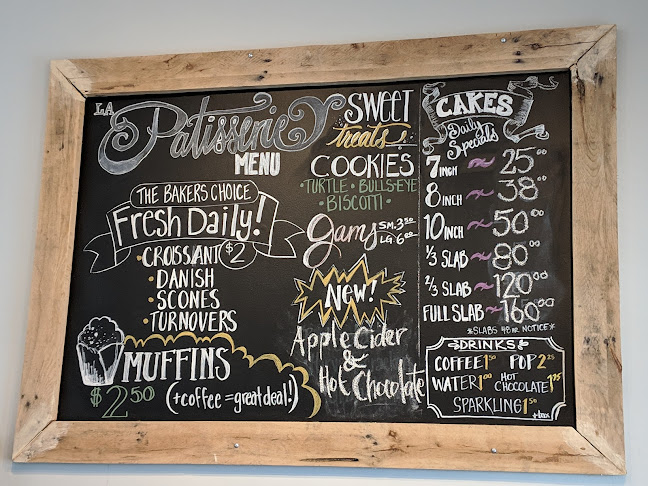 LA
Patisserie
MENU
THE BAKERS CHOICE
Fresh Daily!
• CROISSIANT $2
• DANISH
• SCONES
• TURNOVERS
MUFFINS
$2.50
(+coffee = great deal!)
SWEET
treats
COOKIES
• TURTLE • BULLS-EYE
BISCOTTI •
Jams SM. 3.50
LG 6.00
New!
Apple Cider
&
Hot Chocolate
CAKES
Daily
Specials
7 INCH ~ 25.00
8 INCH ~ 38.00
10 INCH ~ 50.00
1/3 SLAB ~ 80.00
2/3 SLAB ~ 120.00
FULL SLAB ~ 160.00
*SLABS 48 HR NOTICE*
DRINKS
COFFEE 1.50 POP 2.25
WATER 1.00 HOT CHOCOLATE 1.75
SPARKLING 1.50
+tax